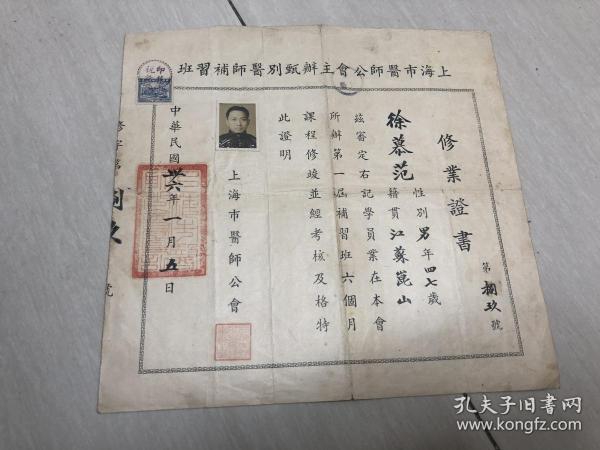 上海市醫師公會主辦甄別醫師補習班
修業證書
第捌玖號
徐慕范 性別男年四七歲
籍貫江蘇崑山
茲審定右記學員業在本會
所辦第一屆補習班六個月
課程修竣並經考核及格特
此證明
上海市醫師公會
中華民國卅六年一月五日
修字第
玖
號
孔夫子旧书网
www.kongfz.com